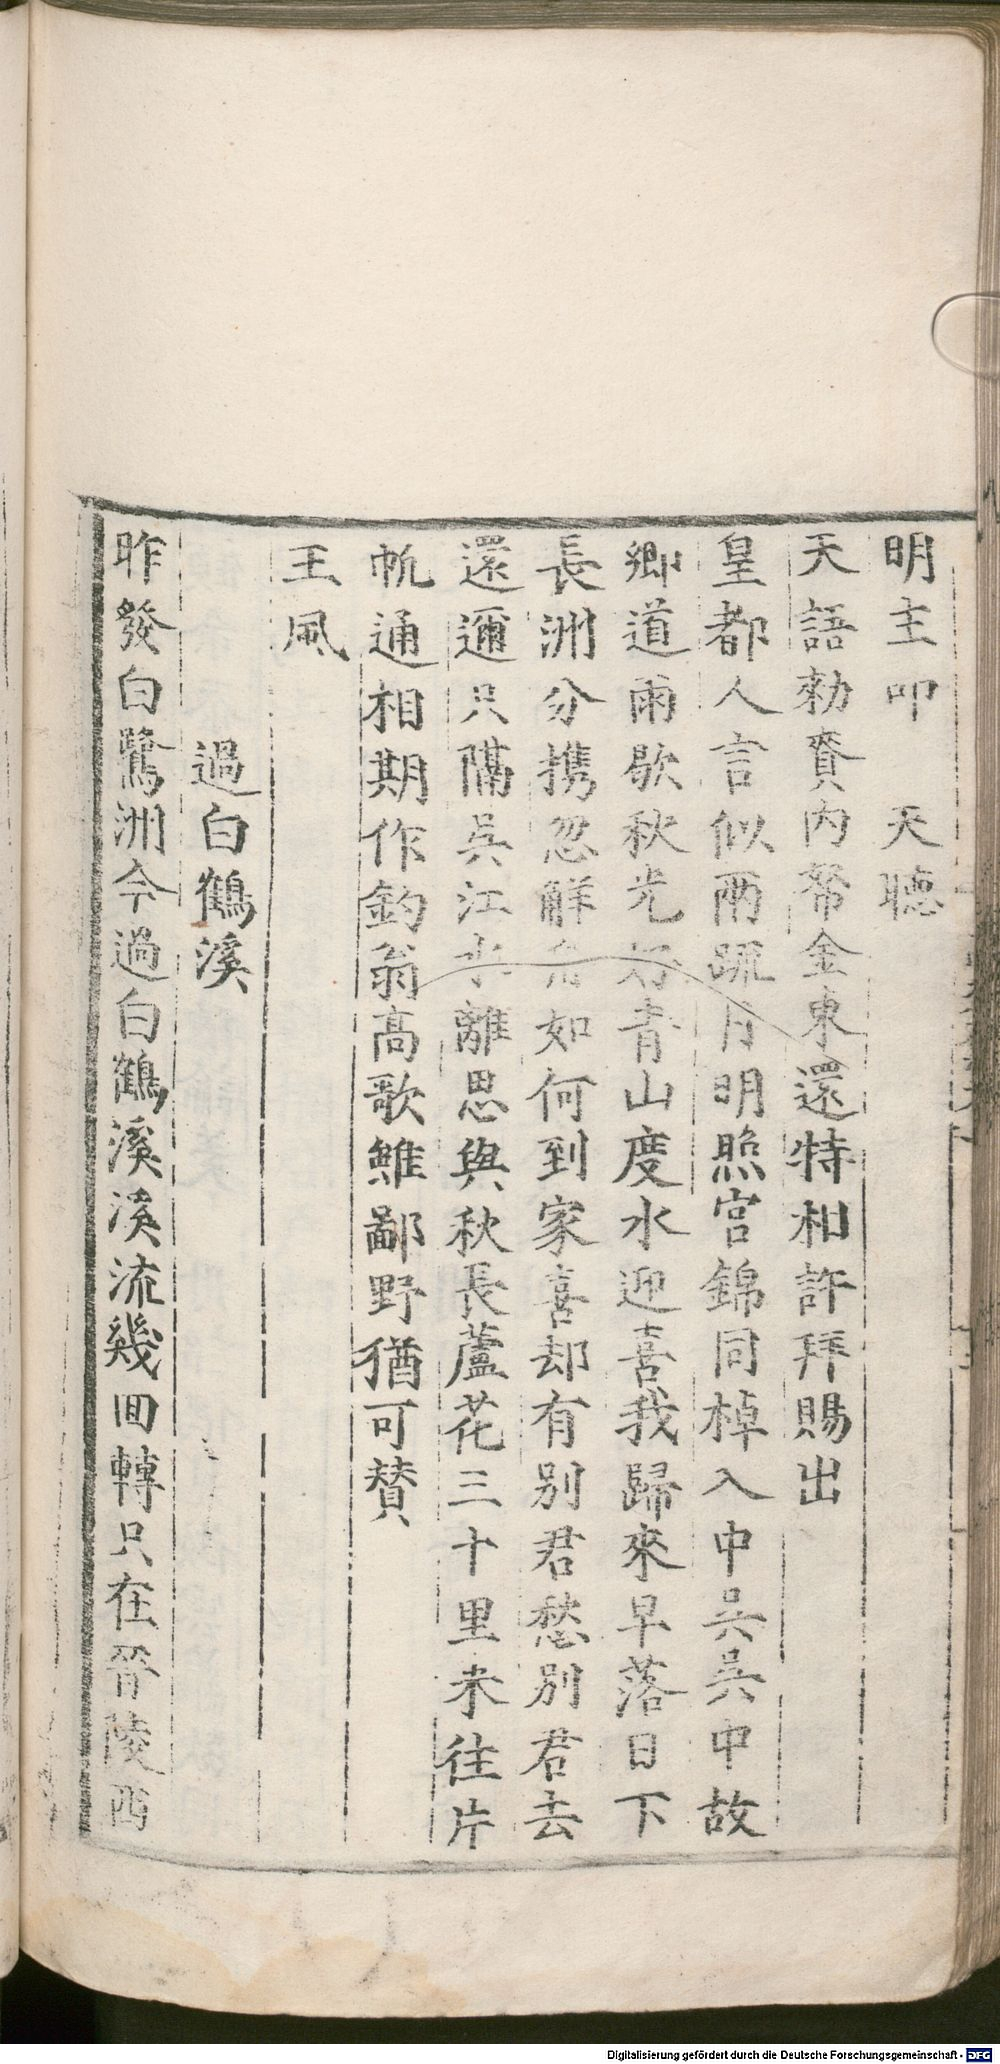 明主叩　天聽
天語勑賚內帑金東還特相許拜賜出
皇都人言似兩疏月明照宮錦同棹入中吳吳中故
卿道雨歇秋光好青山度水迎喜我歸來早落日下
長洲分携忽解舟如何到家喜却有別君愁別君去
還邇只隔吳江水離思與秋長蘆花三十里來往片
帆通相期作釣翁高歌雖鄙野猶可贊
王風
過白鶴溪
昨發白鷺洲今過白鶴溪溪流幾回轉只在晉陵西
Digitalisierung gefördert durch die Deutsche Forschungsgemeinschaft - DFG